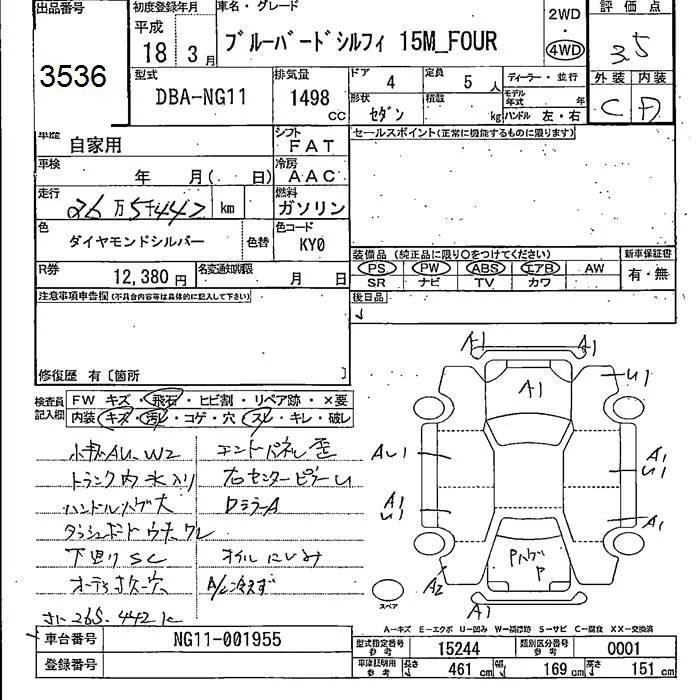 出品番号 初度登録年月 車名・グレード 2WD 評価点
平成 18年 3月 ブルーバードシルフィ 15M_FOUR ・ 4WD 3.5
3536 型式 排気量 ドア 4 定員 5人 ディーラー・並行 外装 内装
DBA-NG11 1498 CC 形状 セダン 積載 kg モデル年式 年 C D
ハンドル 左・右
車歴 自家用 シフト FAT セールスポイント(正常に機能するものに限ります)
車検 年 月( 日) 冷房 AAC
走行 26万5千442 km 燃料 ガソリン
色 ダイヤモンドシルバー 色替 色コード KY0
装備品 (純正品に限り○をつけてください) 新車保証書
PS PW ABS エアB AW 有・無
R券 12,380円 名変通知期限 月 日 SR ナビ TV カワ
注意事項申告欄(不具合内容等は具体的に記入して下さい) 後日品
修復歴 有〔箇所 〕
検査員記入欄 FW キズ・飛石・ヒビ割・リペア跡・×要
内装 キズ・汚れ・コゲ・穴・スレ・キレ・破レ
小キズAU、W2 エンドパネル歪
トランク内水入り 右センターピラーU
ハンドルハゲ大 DミラーA
ダッシュボードウキ、ワレ
下廻りSC オイルにじみ
オーディオ欠 A/C冷えず
265.442に
A1 A1
A1 U1
AU1 A1 U1
A1 U1 A1
A2 P
A1
スペア
A-キズ E-エクボ U-凹み W-補修跡 S-サビ C-腐食 XX-交換済
車台番号 NG11-001955 型式指定番号 参考 15244 類別区分番号 参考 0001
登録番号 車庫証明用 参考 長さ 461cm 幅 169cm 高さ 151cm